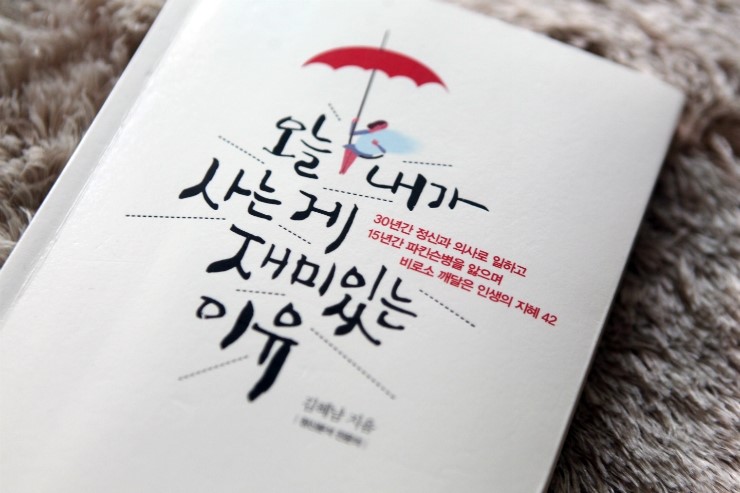 오늘 내가
사는 게
재미있는
이유
30년간 정신과 의사로 일하고
15년간 파킨슨병을 앓으며
비로소 깨달은 인생의 지혜 42
김혜남 지음